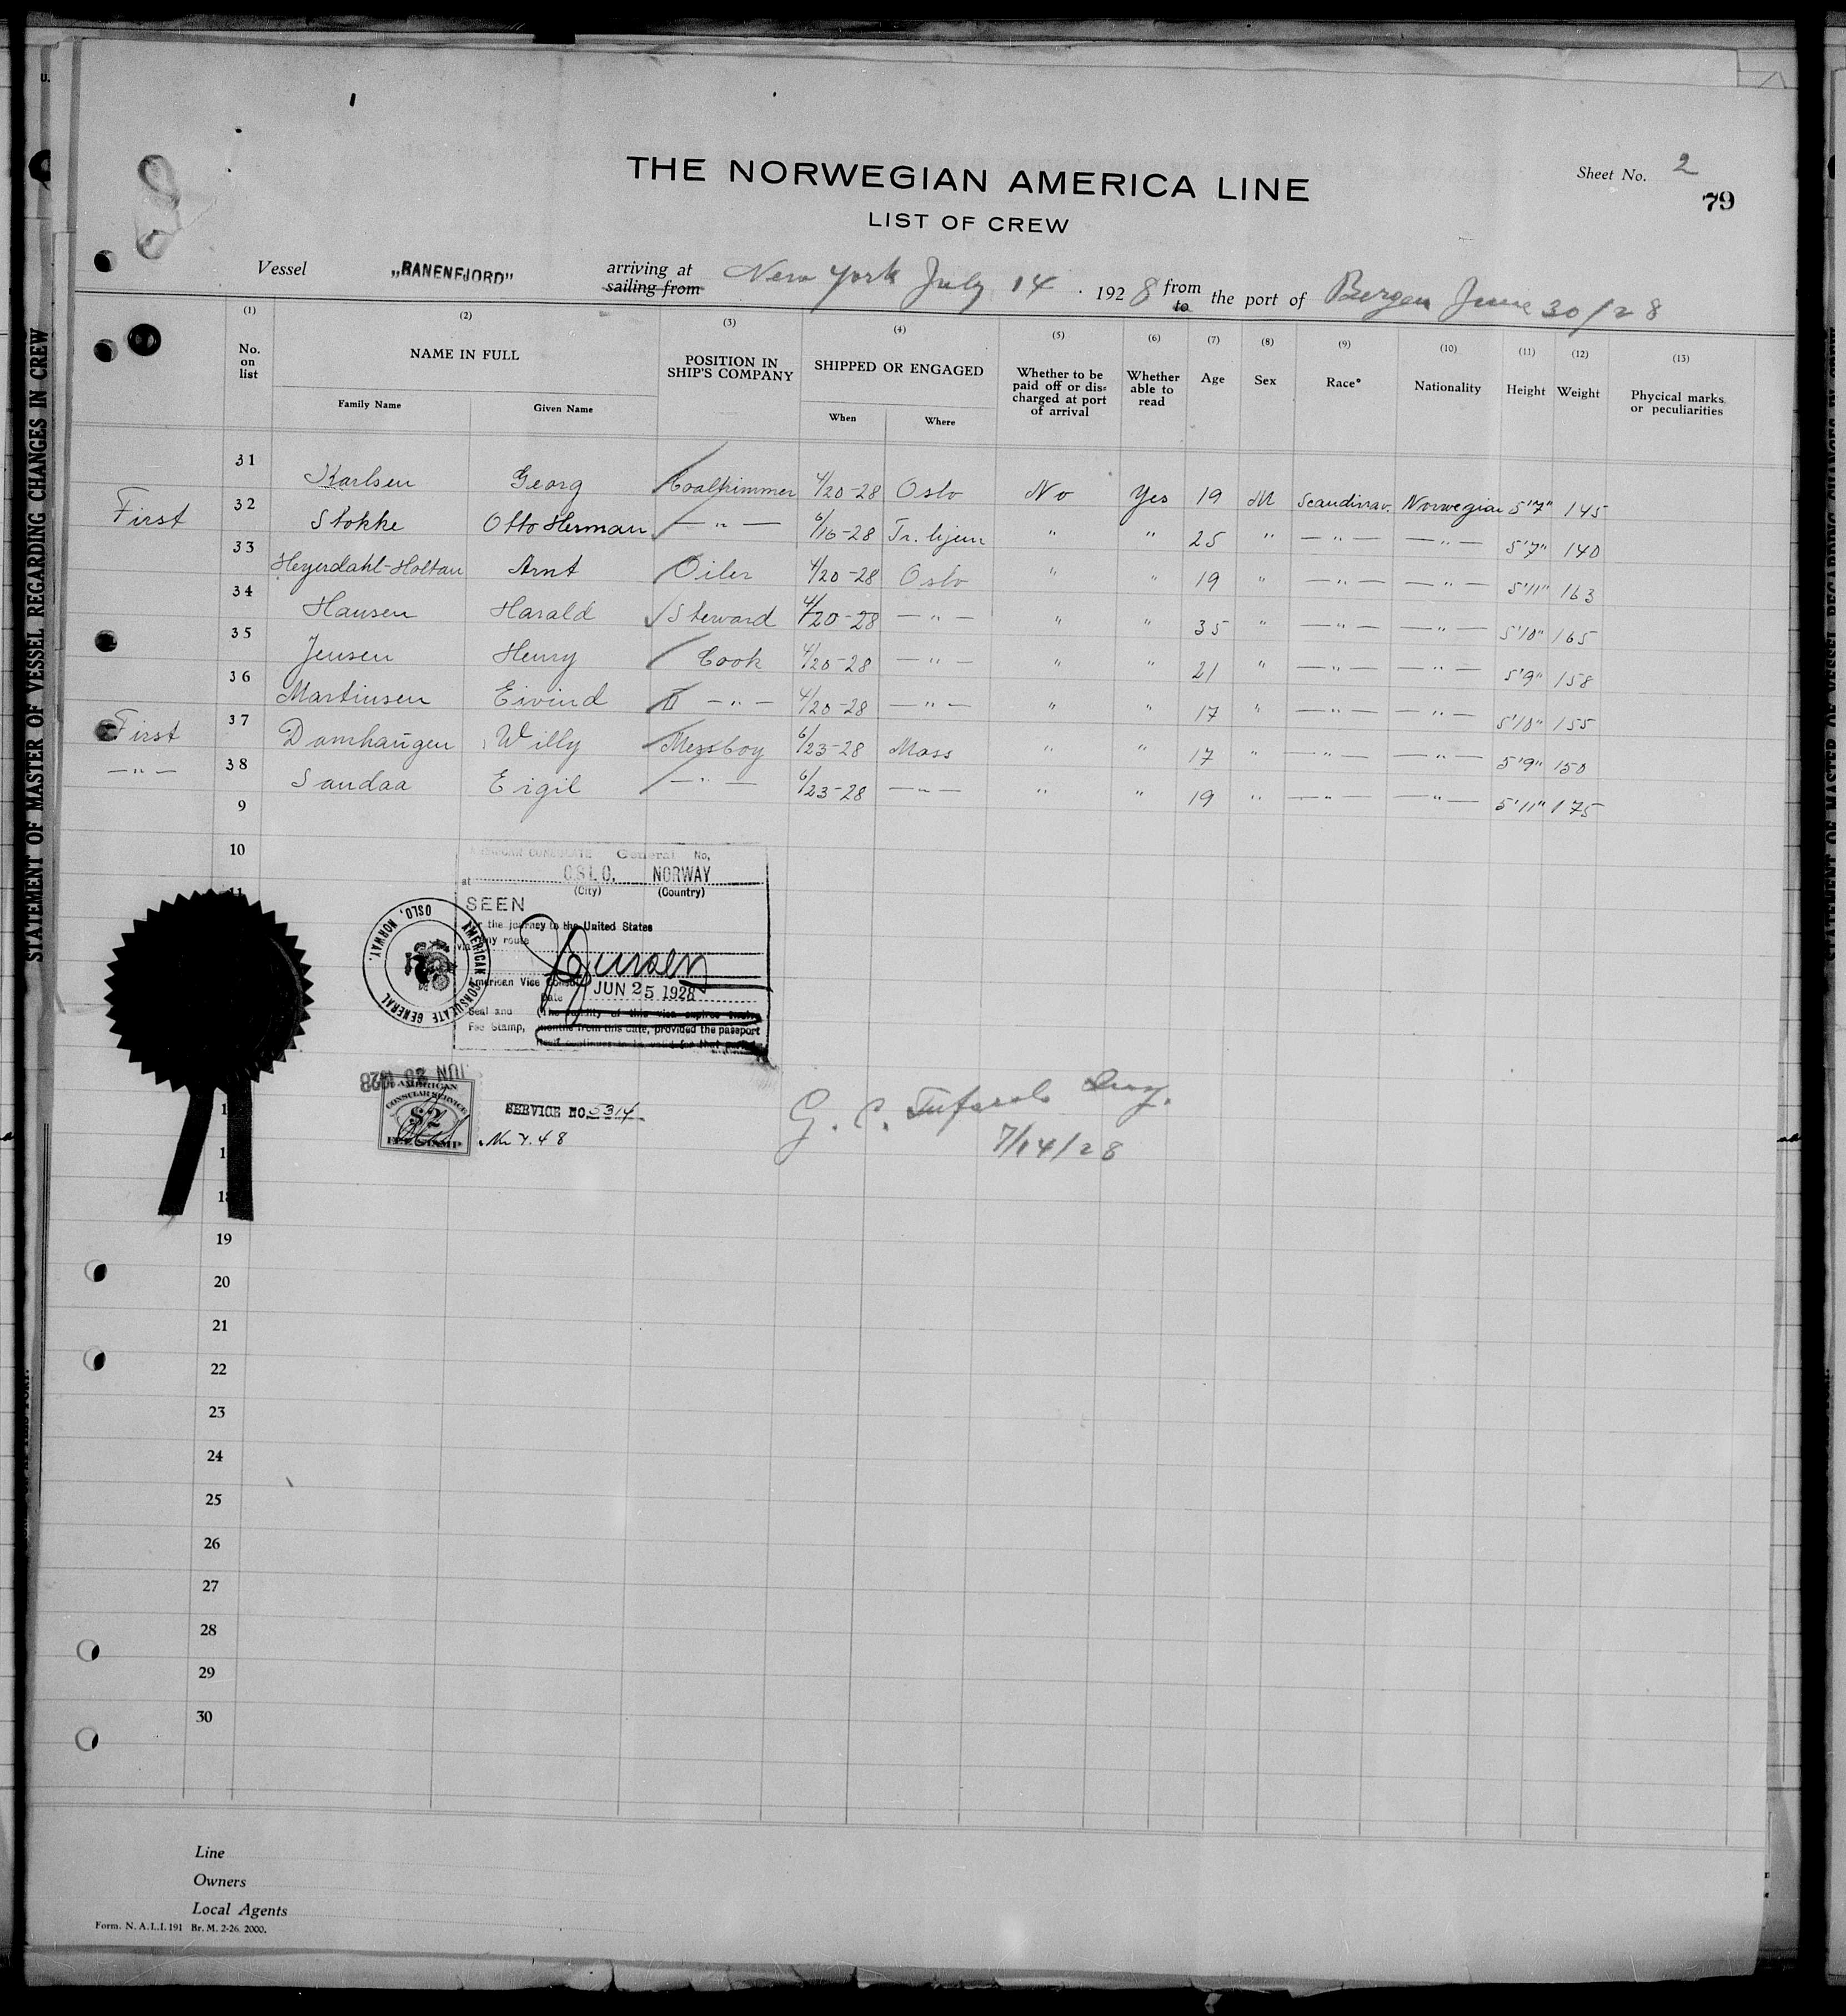 THE NORWEGIAN AMERICA LINE
LIST OF CREW
Sheet No. 2
79
Vessel „RANENFJORD" arriving at sailing from New York July 14 . 1928 from to the port of Bergen June 30/28
(1) (2) (3) (4) (5) (6) (7) (8) (9) (10) (11) (12) (13)
No. on list NAME IN FULL POSITION IN SHIP'S COMPANY SHIPPED OR ENGAGED Whether to be paid off or dis= charged at port of arrival Whether able to read Age Sex Race* Nationality Height Weight Phycical marks or peculiarities
Family Name Given Name When Where
31 Karlsen Georg Coaltrimmer 4/20-28 Oslo No Yes 19 M Scandinav. Norwegian 5'7" 145
First 32 Stokke Otto Herman — " — 6/16-28 Tr. hjem " " 25 " — " — — " — 5'7" 140
33 Heyerdahl-Holtan Arnt Oiler 4/20-28 Oslo " " 19 " — " — — " — 5'11" 163
34 Hansen Harald Steward 4/20-28 — " — " " 35 " — " — — " — 5'10" 165
35 Jensen Henry Cook 4/20-28 — " — " " 21 " — " — — " — 5'9" 158
36 Martinsen Eivind II — " — 4/20-28 — " — " " 17 " — " — — " — 5'10" 155
First 37 Damhaugen Willy Messboy 6/23-28 Moss " " 17 " — " — — " — 5'9" 150
— " — 38 Sandaa Eigil — " — 6/23-28 — " — " " 19 " — " — — " — 5'11" 175
9
10
11
AMERICAN CONSULATE General No,
at OSLO, NORWAY
(City) (Country)
SEEN
For the journey to the United States
via any route
American Vice Consul
Date JUN 25 1928
Seal and (The validity of this visa expires twelve
Fee Stamp, months from this date, provided the passport
itself continues to be valid for that period
AMERICAN CONSULATE GENERAL OSLO, NORWAY.
JUN 25 1928
AMERICAN
CONSULAR SERVICE
$2
FEE STAMP
SERVICE NO. 5314
Kr 7.48
7/14/28
18
19
20
21
22
23
24
25
26
27
28
29
30
Line
Owners
Local Agents
Form. N. A.L.I. 191 Br. M. 2-26. 2000.
STATEMENT OF MASTER OF VESSEL REGARDING CHANGES IN CREW